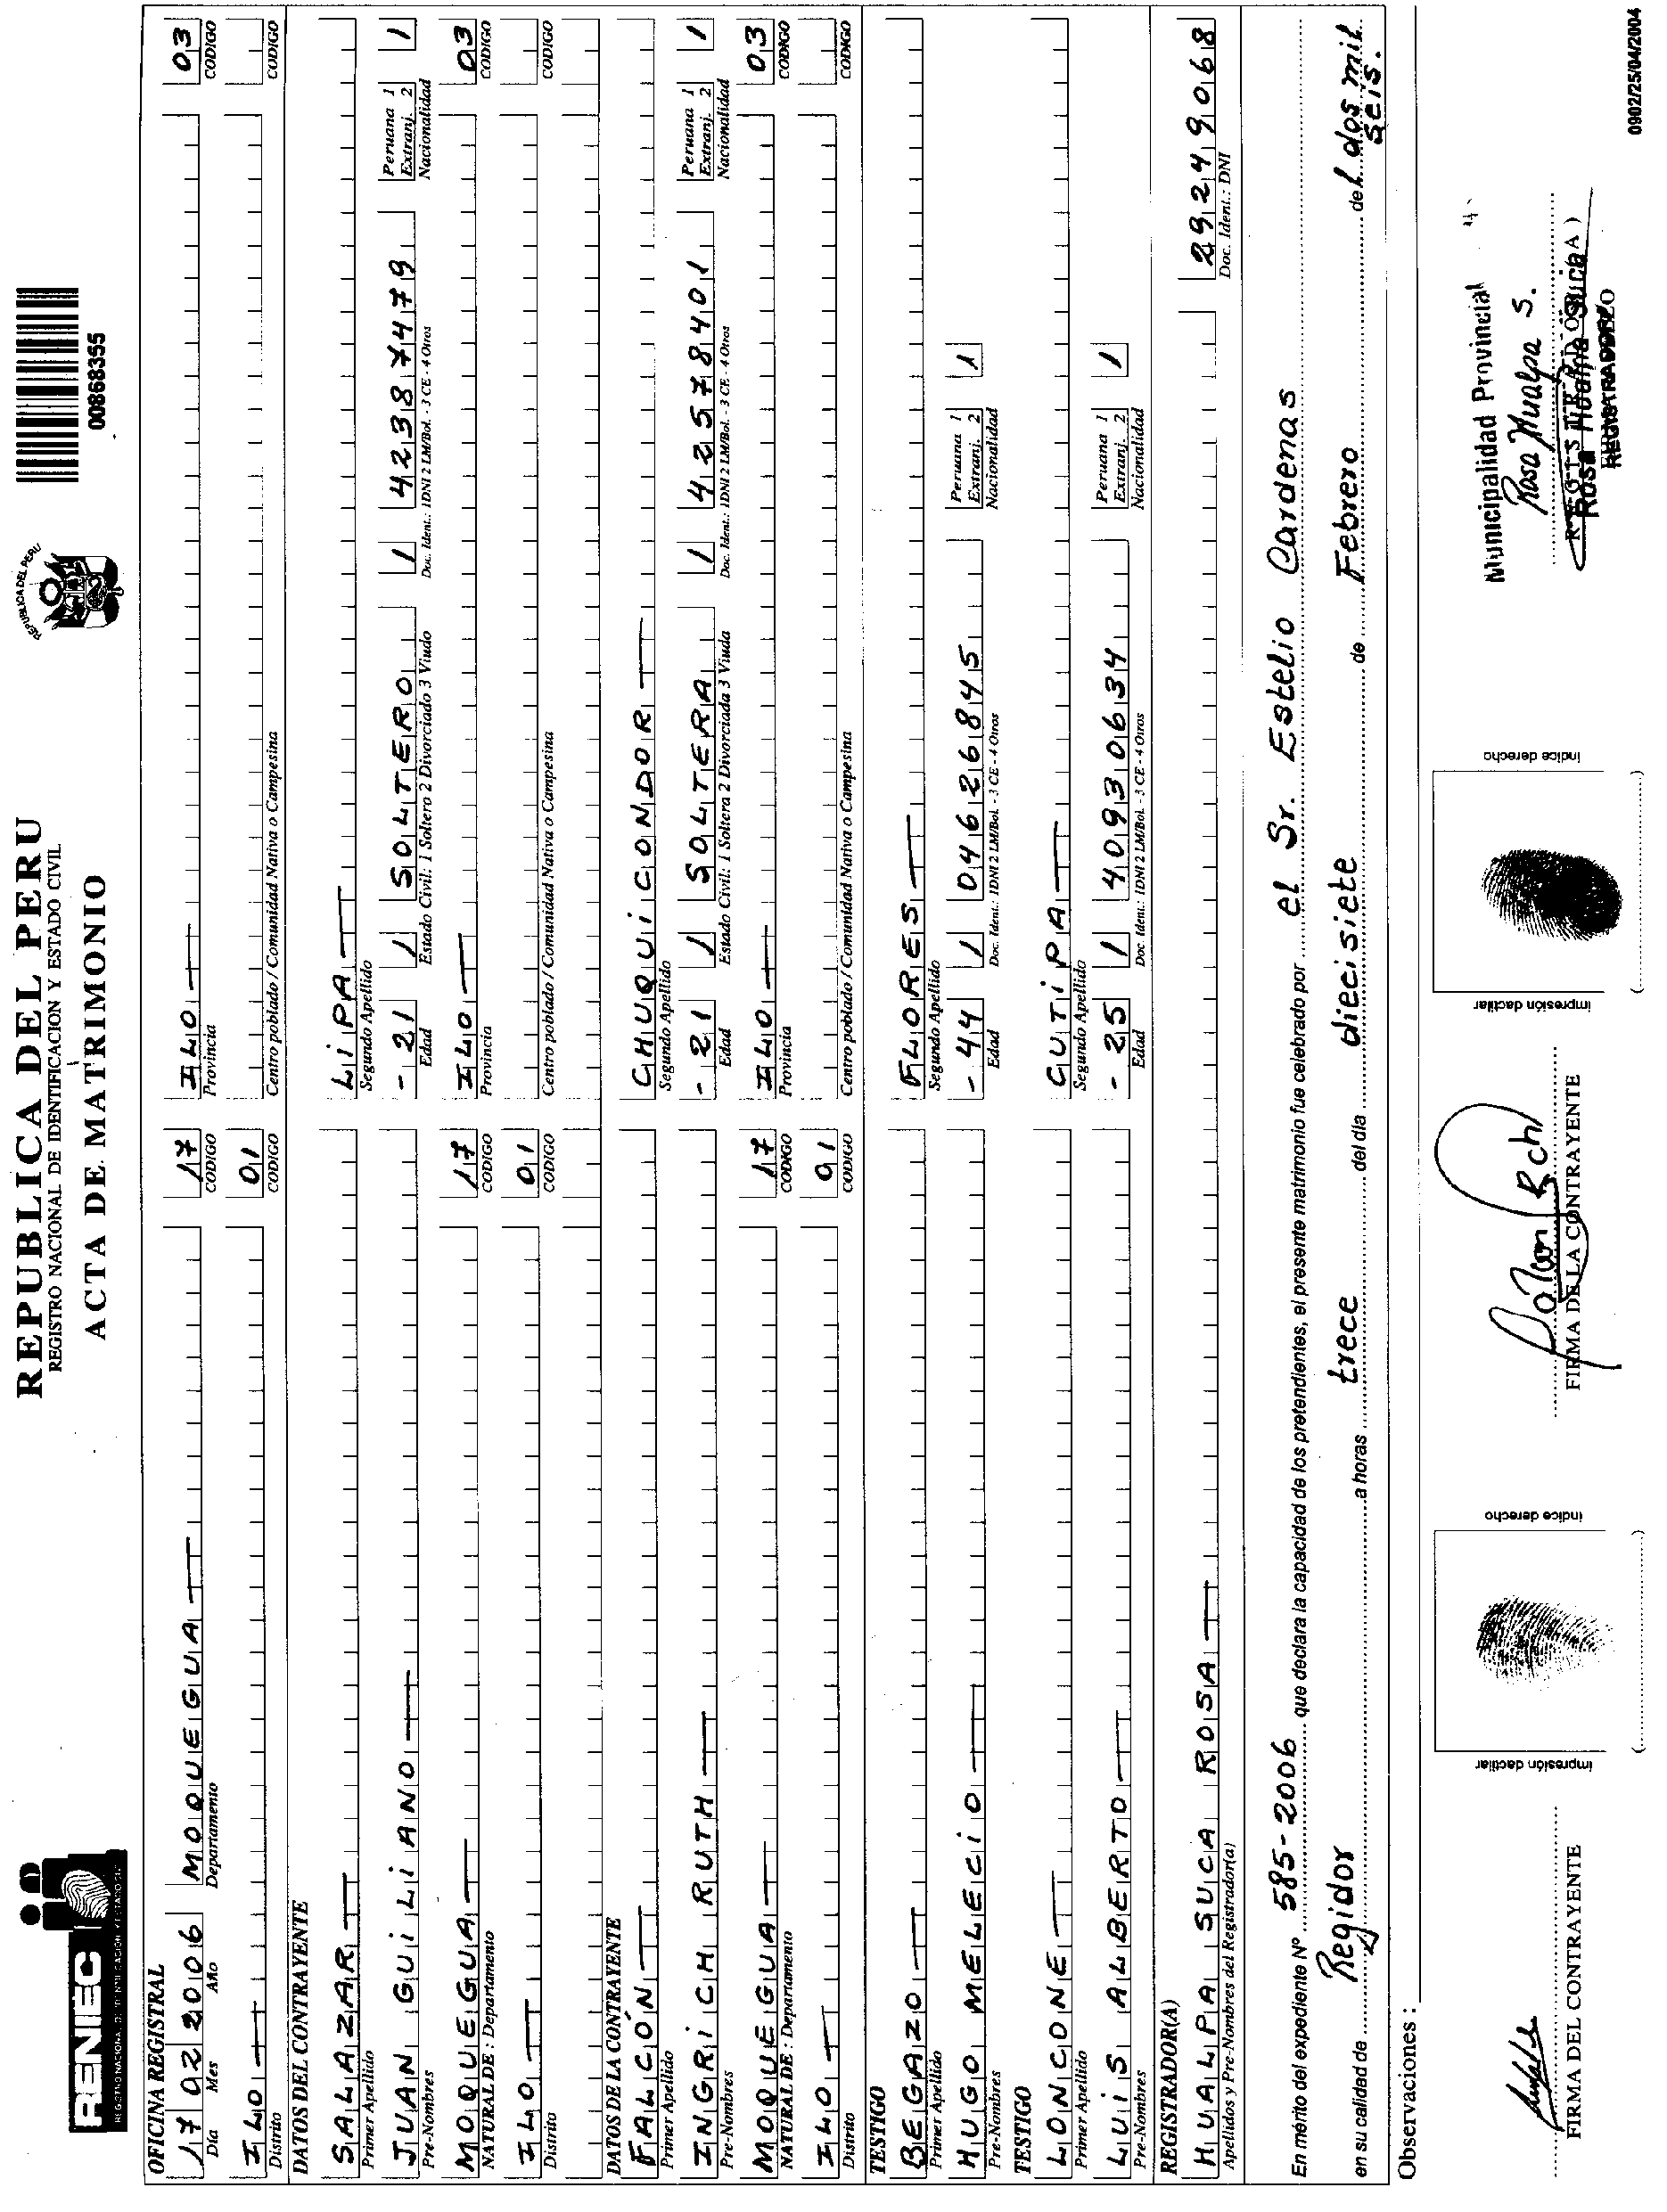 RENIEC
REGISTRO NACIONAL DE IDENTIFICACION Y ESTADO CIVIL
REPUBLICA DEL PERU
REGISTRO NACIONAL DE IDENTIFICACION Y ESTADO CIVIL
ACTA DE MATRIMONIO
REPUBLICA DEL PERU
00868355
OFICINA REGISTRAL
17 02 2006 MOQUEGUA 17 ILO 03
Día Mes Año Departamento CODIGO Provincia CODIGO
ILO 01
Distrito CODIGO Centro poblado / Comunidad Nativa o Campesina CODIGO
DATOS DEL CONTRAYENTE
SALAZAR LiPA
Primer Apellido Segundo Apellido
JUAN GUiLiANO - 21 1 SOLTERO 1 42387479 Peruana 1 Extranj. 2 1
Pre-Nombres Edad Estado Civil: 1 Soltero 2 Divorciado 3 Viudo Doc. Ident.: 1DNI 2 LM/Bol. - 3 CE - 4 Otros Nacionalidad
MOQUEGUA 17 ILO 03
NATURAL DE : Departamento CODIGO Provincia CODIGO
ILO 01
Distrito CODIGO Centro poblado / Comunidad Nativa o Campesina CODIGO
DATOS DE LA CONTRAYENTE
FALCÓN CHUQUiCONDOR
Primer Apellido Segundo Apellido
INGRiCH RUTH - 21 1 SOLTERA 1 42578401 Peruana 1 Extranj. 2 1
Pre-Nombres Edad Estado Civil: 1 Soltera 2 Divorciada 3 Viuda Doc. Ident.: 1DNI 2 LM/Bol. - 3 CE - 4 Otros Nacionalidad
MOQUEGUA 17 ILO 03
NATURAL DE : Departamento CODIGO Provincia CODIGO
ILO 01
Distrito CODIGO Centro poblado / Comunidad Nativa o Campesina CODIGO
TESTIGO
BEGAZO FLORES
Primer Apellido Segundo Apellido
HUGO MELECiO - 44 1 04626845 Peruana 1 Extranj. 2 1
Pre-Nombres Edad Doc. Ident.: 1DNI 2 LM/Bol. - 3 CE - 4 Otros Nacionalidad
TESTIGO
LONCONE CUTiPA
Primer Apellido Segundo Apellido
LUiS ALBERTO - 25 1 40930634 Peruana 1 Extranj. 2 1
Pre-Nombres Edad Doc. Ident.: 1DNI 2 LM/Bol. - 3 CE - 4 Otros Nacionalidad
REGISTRADOR(A)
HUALPA SUCA ROSA 29249068
Apellidos y Pre-Nombres del Registrador(a) Doc. Ident.: DNI
En mérito del expediente Nº 585-2006 que declara la capacidad de los pretendientes, el presente matrimonio fue celebrado por el Sr. Estelio Cardenas
en su calidad de Regidor a horas trece del día diecisiete de Febrero del dos mil seis.
Observaciones :
FIRMA DEL CONTRAYENTE
impresión dactilar
índice derecho
FIRMA DE LA CONTRAYENTE
impresión dactilar
índice derecho
Municipalidad Provincial
Rosa Hualpa S.
Rosa Hualpa Suca
0902/25/04/2004